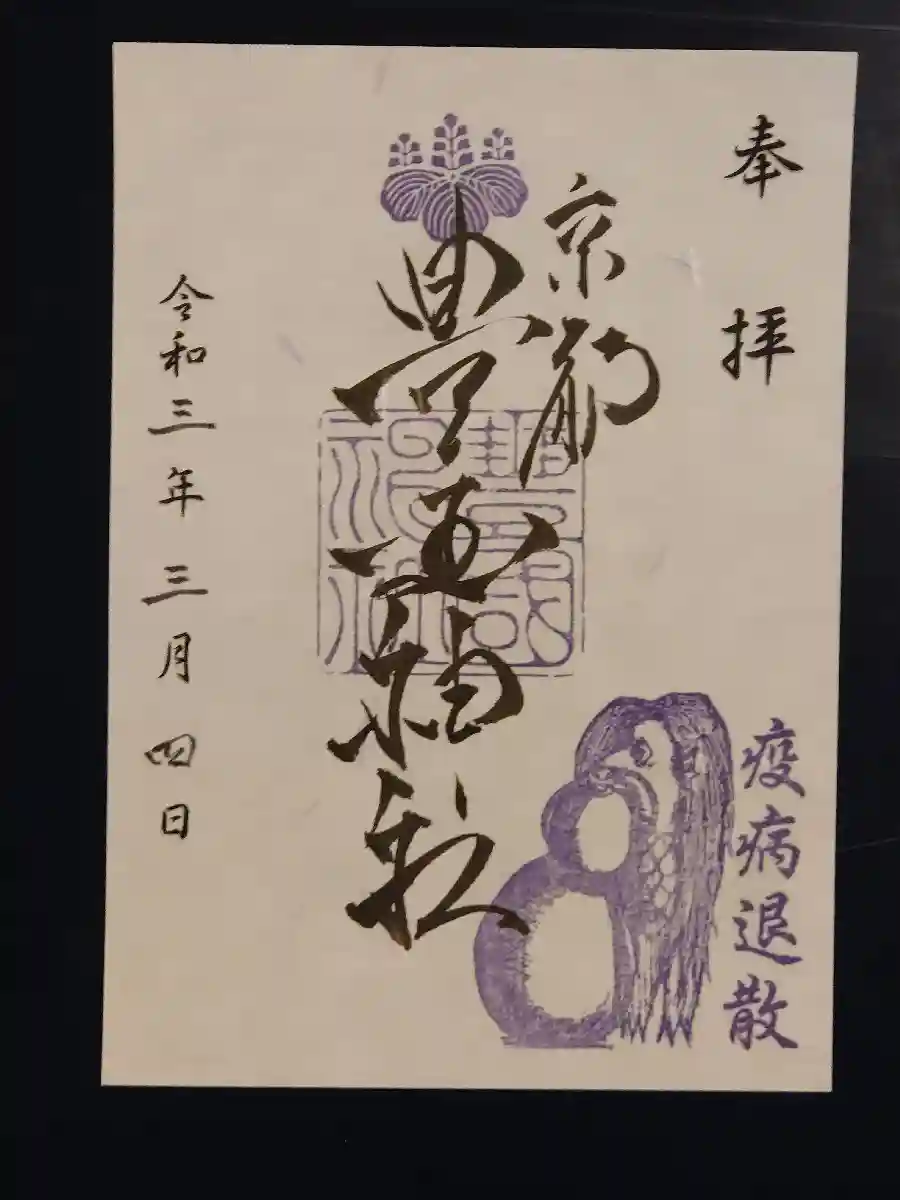 奉拝
京都
豊国神社
豐國
神社
令和三年三月四日
疫病退散